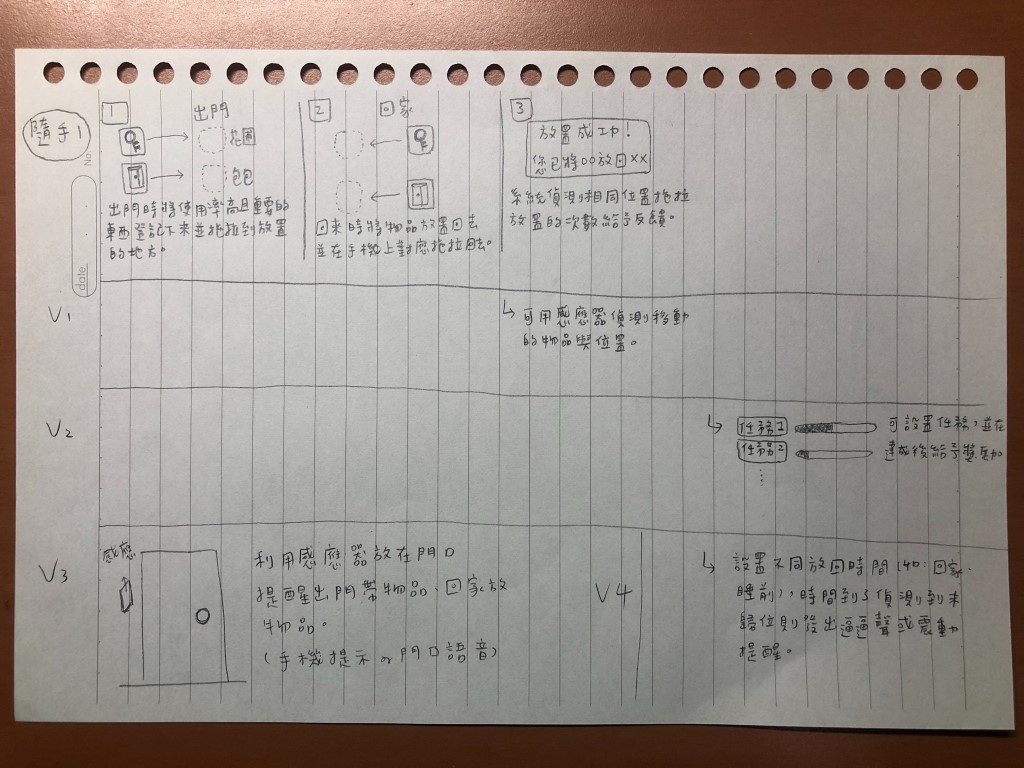 隨手1
No.
date
1 出門
花園
包包
出門時將使用率高且重要的
東西登記下來並拖拉到放置
的地方。
2 回家
回來時將物品放置回去
並在手機上對應拖拉回去。
3
放置成功!
您已將OO放回XX
系統偵測相同位置拖拉
放置的次數給予反饋。
V1
↳ 可用感應器偵測移動
的物品與位置。
V2
↳ 任務1 可設置任務,並在
任務2 達成後給予獎勵
V3
感應
利用感應器放在門口
提醒出門帶物品、回家放
物品。
(手機提示 or 門口語音)
V4
↳ 設置不同放回時間(如:回家、
睡前),時間到了偵測到未
歸位則發出逼逼聲或震動
提醒。